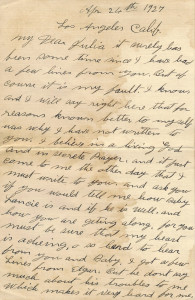 Apr 26th 1927
Los Angeles Calif.
My Dear Julia it surely has
been some time since I have had
a few lines from you. But of
course it is my fault. I know
and I will say right here that for
reasons known better to myself
was why I have not written to
you. I believe in a living God
and in secret Prayer. and it just
came to me the other day that I
must write to you and ask you
if you would tell me how Baby
is and if he is well. and
how you are getting along. for you
must be sure that my heart
is acheing, o so hard to hear
from you and Baby, I got a few
lines from Elgar. But he dont say
much about his troubles to me
which makes it very hard for me